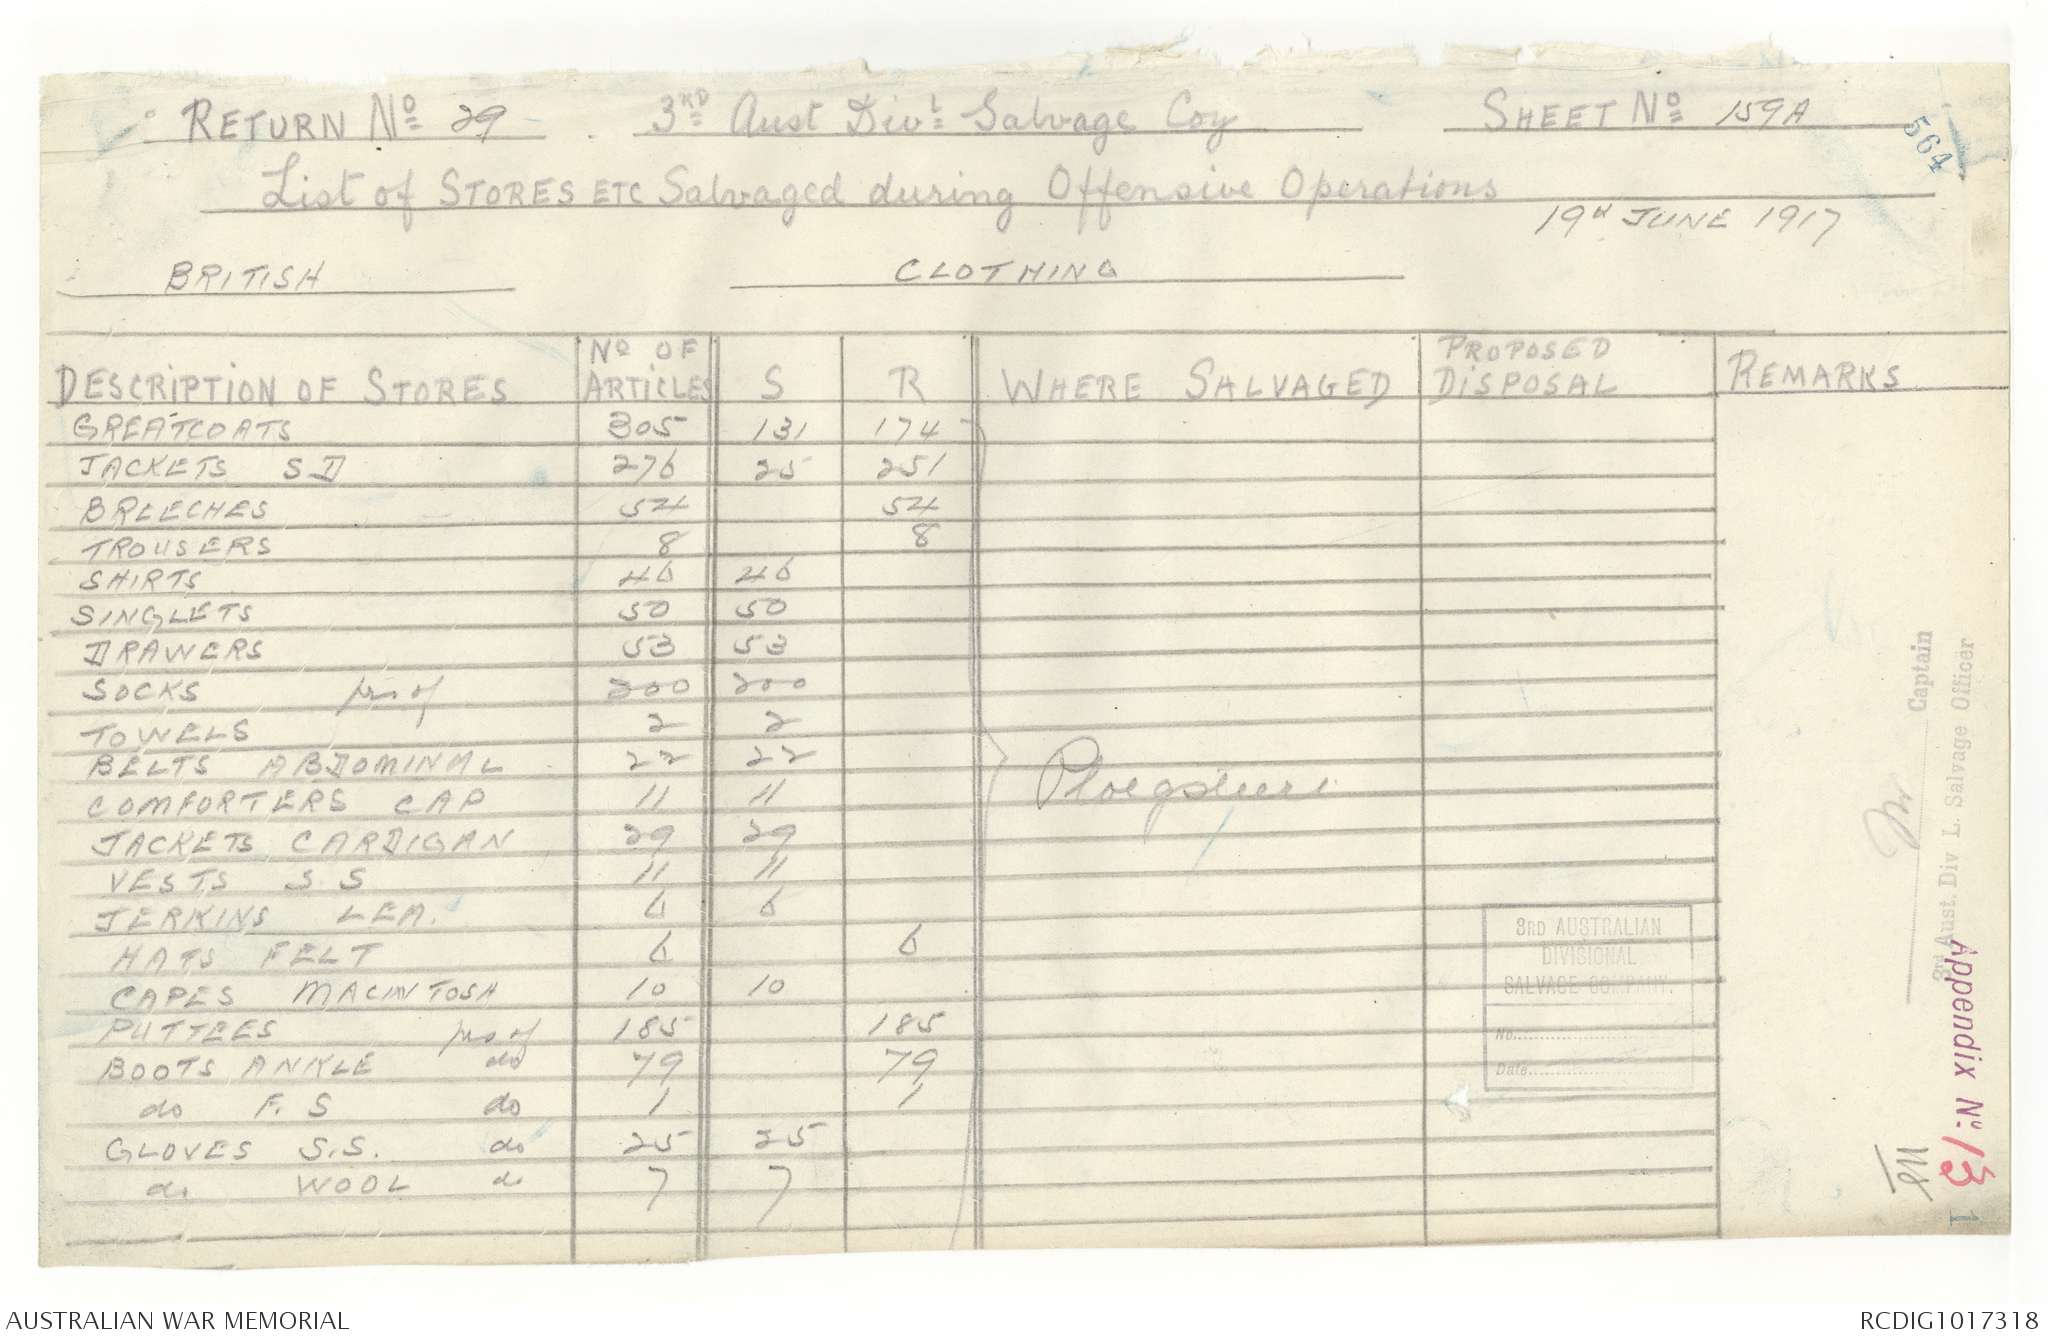 RETURN No 29 3RD Aust Divl Salvage Coy SHEET No 159A
564
List of STORES ETC Salvaged during Offensive Operations
19th JUNE 1917
BRITISH CLOTHING
DESCRIPTION OF STORES No OF ARTICLES S R WHERE SALVAGED PROPOSED DISPOSAL REMARKS
GREATCOATS 305 131 174
JACKETS SD 276 25 251
BREECHES 54 54
TROUSERS 8 8
SHIRTS 46 46
SINGLETS 50 50
DRAWERS 53 53
SOCKS prs of 200 200
TOWELS 2 2
BELTS ABDOMINAL 22 22
COMFORTERS CAP 11 11
Ploegsteert
JACKETS CARDIGAN 29 29
VESTS S.S 11 11
JERKINS LEA. 6 6
HATS FELT 6 6
CAPES MACINTOSH 10 10
PUTTEES prs of 185 185
BOOTS ANKLE do 79 79
do F.S do 1 1
GLOVES S.S. do 25 25
do WOOL do 7 7
3RD AUSTRALIAN
DIVISIONAL
SALVAGE COMPANY.
No.
Date
Captain
3rd Aust. Div L. Salvage Officer
Appendix No. 13
1
AUSTRALIAN WAR MEMORIAL
RCDIG1017318